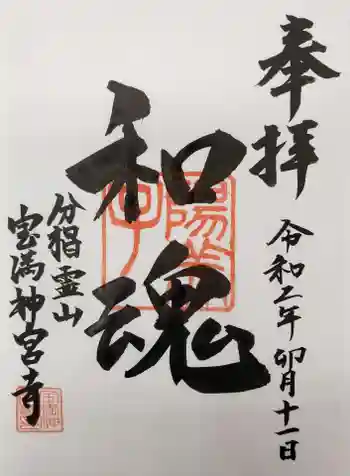 奉拝
令和 年 卯月十一日
和魂
分椙霊山
宝満神宮寺